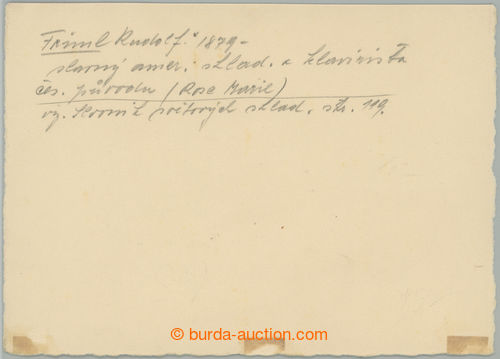 Friml Rudolf * 1879-
slavný amer. sklad. a klavirista
čes. původu (Rose Marie)
viz. Slovník světových sklad. str. 119.
© burda-auction.com